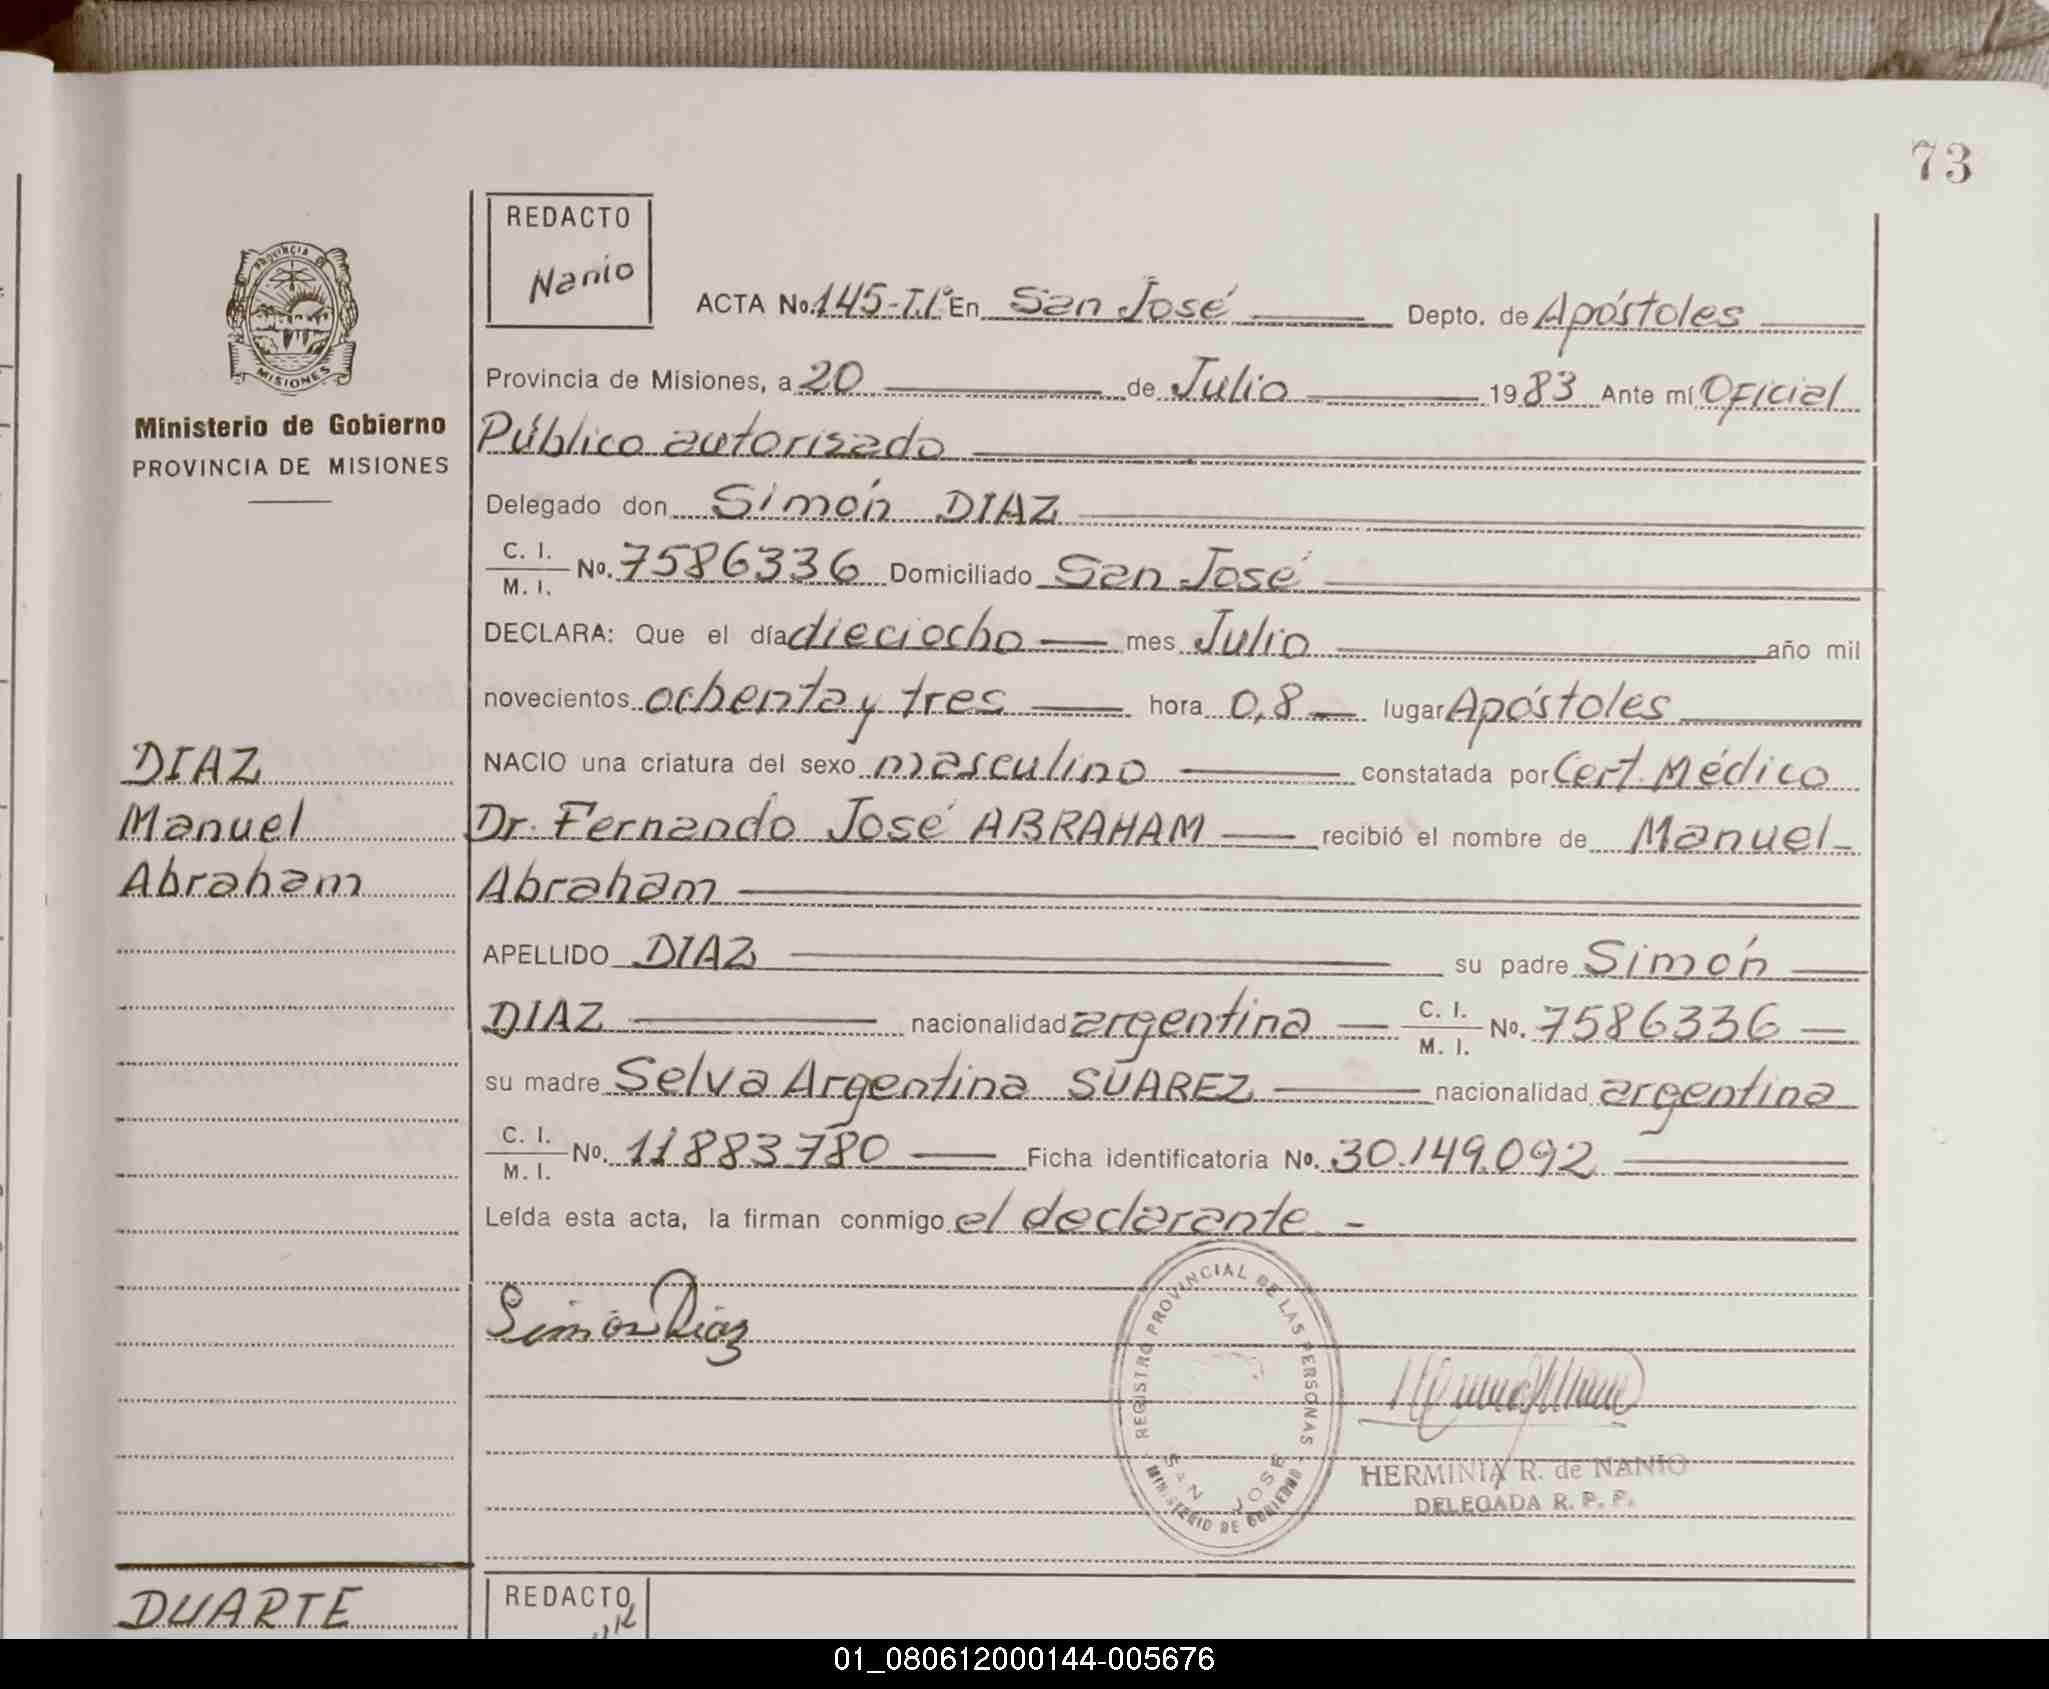 73
REDACTO
Nanio
PROVINCIA DE
MISIONES
Ministerio de Gobierno
PROVINCIA DE MISIONES
ACTA No. 145-T.1º En San José Depto. de Apóstoles
Provincia de Misiones, a 20 de Julio 1983 Ante mí Oficial
Público autorizado
Delegado don Simón DIAZ
C. I. / M. I. No. 7586336 Domiciliado San José
DECLARA: Que el día dieciocho mes Julio año mil
novecientos ochenta y tres hora 0,8 lugar Apóstoles
NACIO una criatura del sexo masculino constatada por Cert. Médico
Dr. Fernando José ABRAHAM recibió el nombre de Manuel
Abraham
APELLIDO DIAZ su padre Simón
DIAZ nacionalidad argentina C. I. / M. I. No. 7586336
su madre Selva Argentina SUAREZ nacionalidad argentina
C. I. / M. I. No. 11883780 Ficha identificatoria No. 30.149.092
Leída esta acta, la firman conmigo el declarante. -
DIAZ
Manuel
Abraham
Simón Diaz
REGISTRO PROVINCIAL DE LAS PERSONAS
SAN JOSE
MINISTERIO DE GOBIERNO
HERMINIA R. de NANIO
DELEGADA R. P. P.
DUARTE
REDACTO
01_080612000144-005676